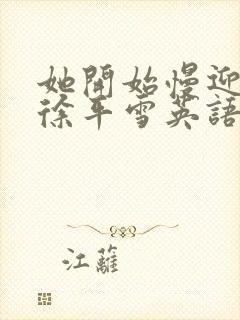 她開始慢迎
徐平雪英語
江蘺